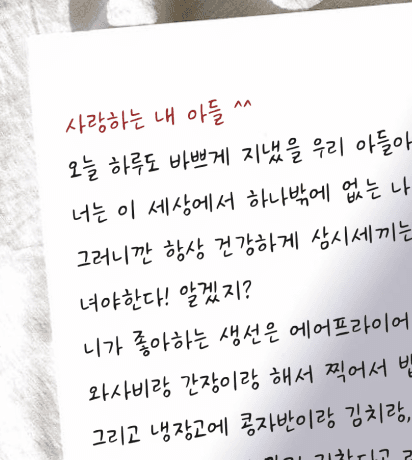 사랑하는 내 아들 ^^
오늘 하루도 바쁘게 지냈을 우리 아들아
너는 이 세상에서 하나밖에 없는 나
그러니깐 항상 건강하게 삼시세끼는
녀야한다! 알겠지?
니가 좋아하는 생선은 에어프라이어
와사비랑 간장이랑 해서 찍어서 밥
그리고 냉장고에 콩자반이랑 김치랑,